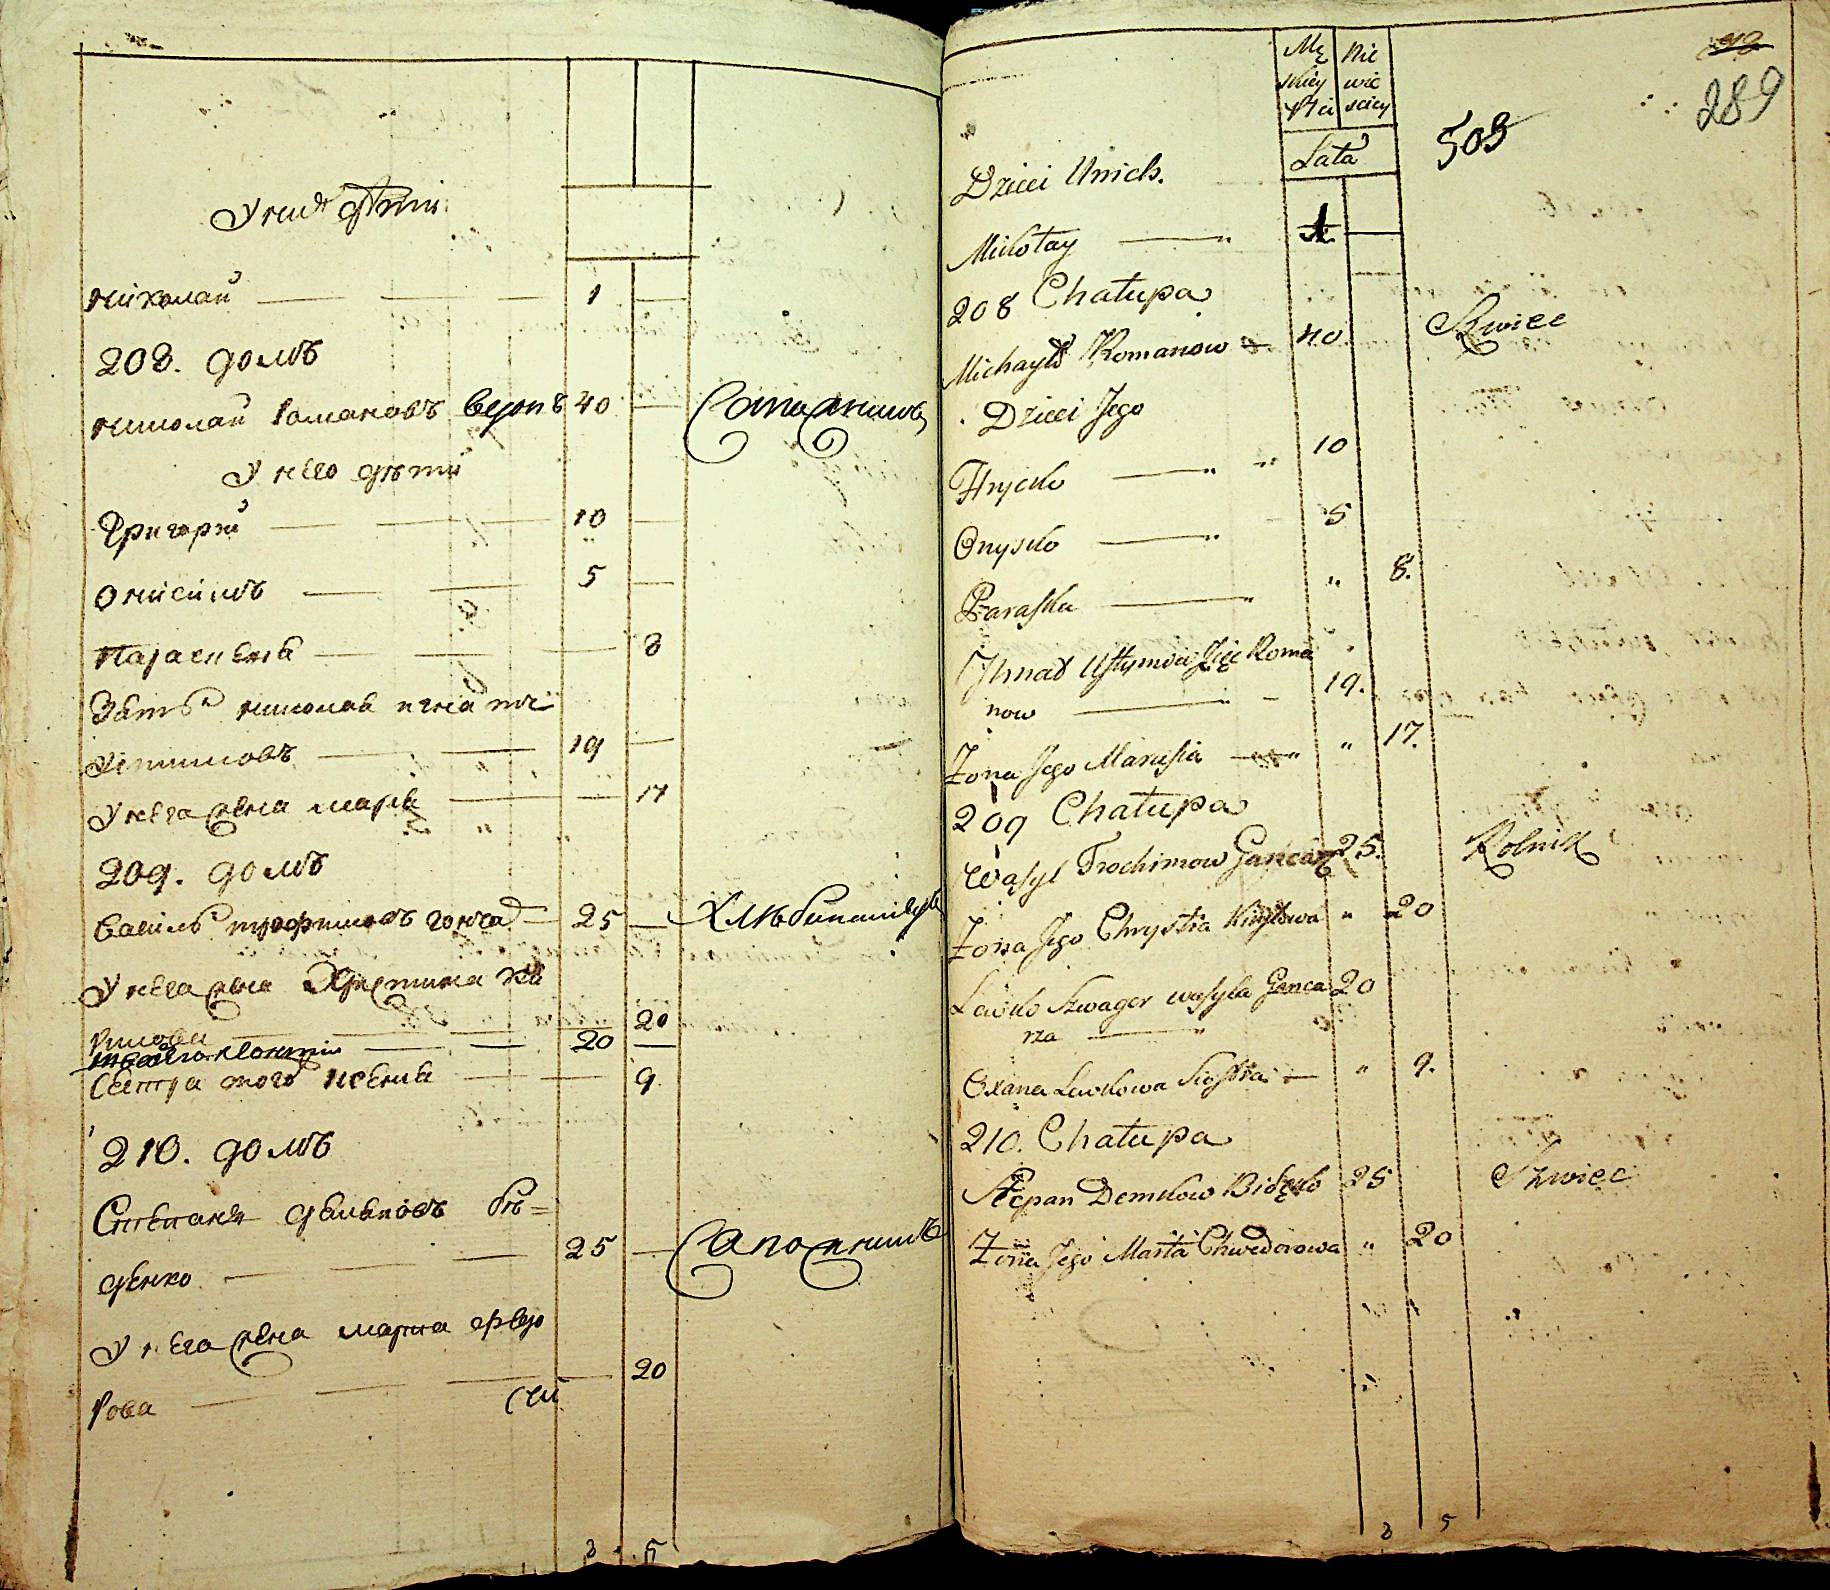 У нихъ дѣти
Николай 1
208. домъ
Николай Романовъ 40 Сапожникъ
У него дѣти
Григорий 10
Онисимъ 5
Параскева 8
Зять Николая Игнатій
Устимовъ 19
У нега жена Маря 17
209. домъ
Василь Трофимовъ Гончар 25 Хлѣбопашецъ
У нега жена Христина Ки
рилова 20
20
Сестра того Ксения 9.
210. домъ
Степанъ Демьновъ Бѣ=
денко 25 Сапожникъ
У нега жена Марта Федо
рова 20
8 5
289
Mę Nie
skiey wie
Płci sciey
Lata
503
Dzieci Unich.
Mikołay 1
208 Chałupa
Michayło Romanow 40. Szwiec
Dzieci Jego
Hrycko 10
Onysko 5
Paraska 8.
Jhnat Ustymow Zięc Roma
now 19.
Żona Jego Marusia 17.
209 Chałupa
Wasyl Trochimow Gancarz 25. Rolnik
Żona Jego Chrystia Kiryłowa 20
Lewko Szwager Wasyla Ganca 20
rza
Oxana Lewkowa Siostra 9.
210. Chałupa
Stepan Demkow Bidenko 25 Szwiec
Żona Jego Marta Chwedorowa 20
8 5